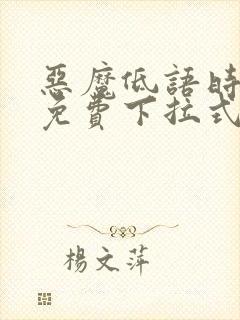 惡魔低語時
免費下拉式
楊文萍